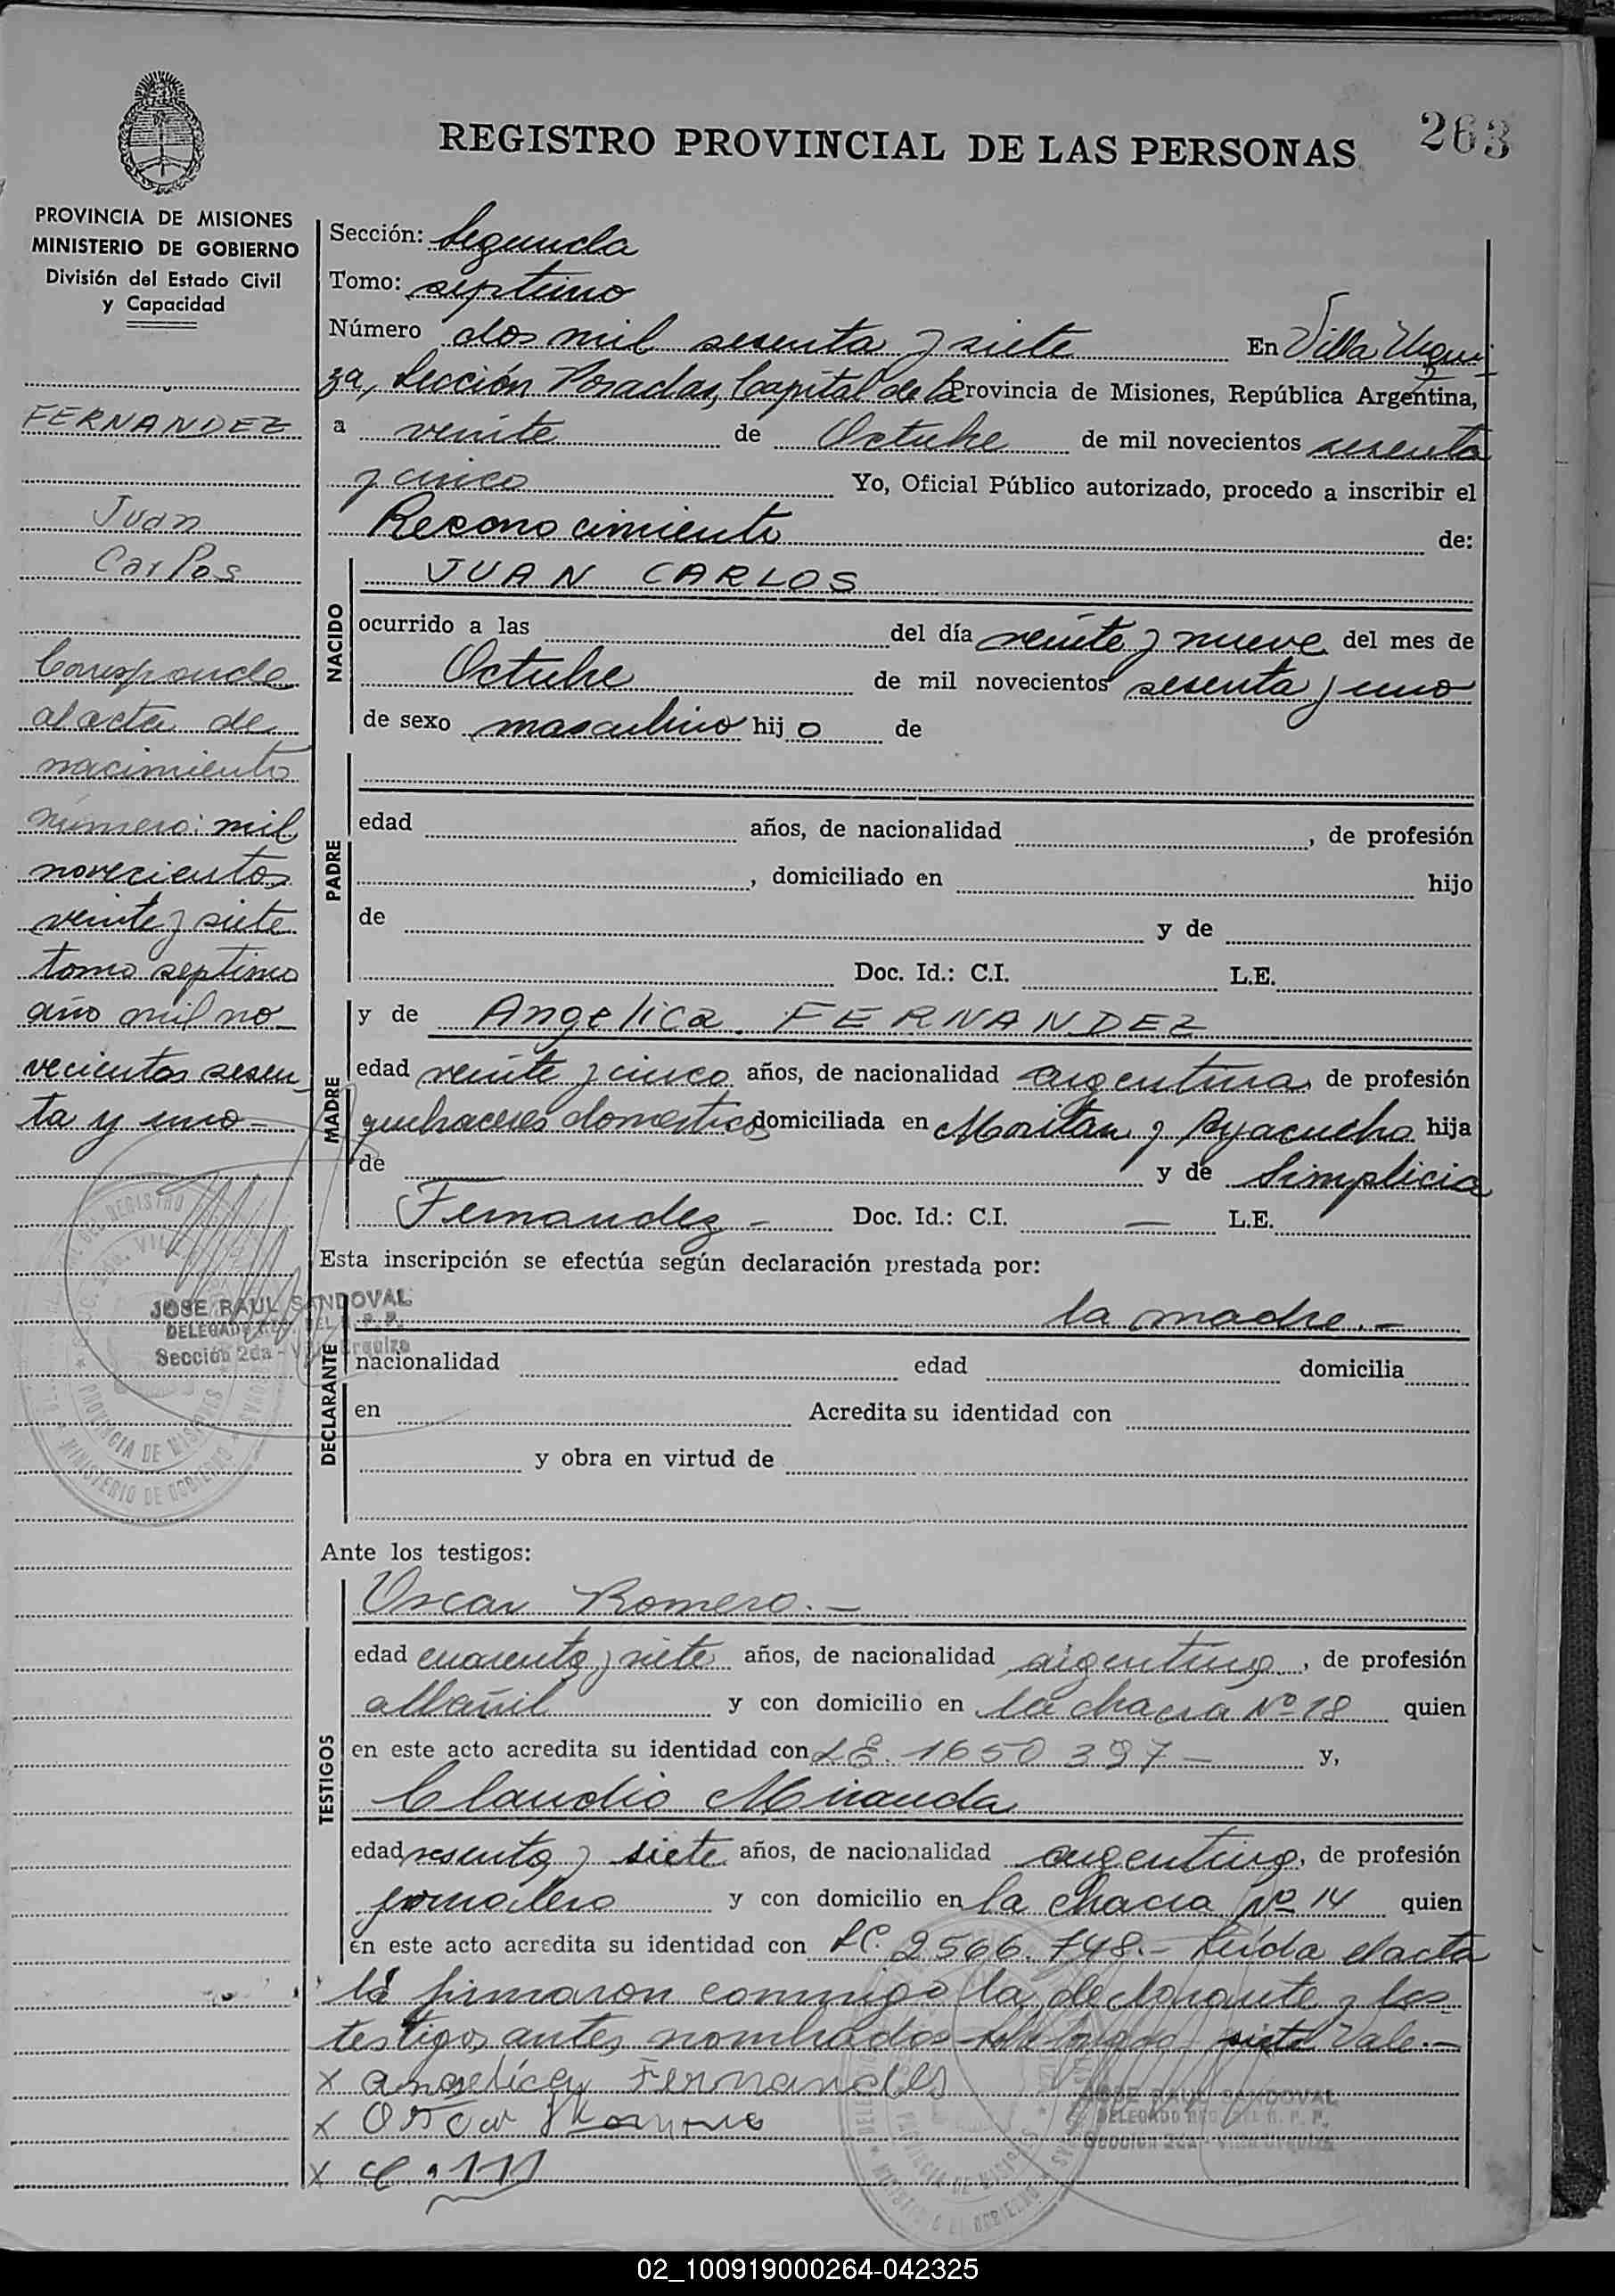 263
REGISTRO PROVINCIAL DE LAS PERSONAS
PROVINCIA DE MISIONES
MINISTERIO DE GOBIERNO
División del Estado Civil
y Capacidad
FERNANDEZ
Juan
Carlos
Corresponde
al acta de
nacimiento
número: mil
novecientos
veinte y siete
tomo septimo
año mil no-
vecientos sesen-
ta y uno-
JOSE RAUL SANDOVAL
DELEGADO REG. DEL R. P. P.
Sección 2da - Villa Urquiza
Sección: Segunda
Tomo: septimo
Número dos mil sesenta y siete En Villa Urqui-
za, Sección Posadas, Capital de la Provincia de Misiones, República Argentina,
a veinte de Octubre de mil novecientos sesenta
y cinco Yo, Oficial Público autorizado, procedo a inscribir el
Reconocimiento de:
NACIDO
JUAN CARLOS
ocurrido a las del día veinte y nueve del mes de
Octubre de mil novecientos sesenta y uno
de sexo masculino hijo de
PADRE
edad años, de nacionalidad , de profesión
, domiciliado en hijo
de y de
Doc. Id.: C.I. L.E.
MADRE
y de Angelica FERNANDEZ
edad veinte y cinco años, de nacionalidad argentina de profesión
quehaceres domesticos domiciliada en Moritan y Ayacucho hija
de y de Simplicia
Fernandez - Doc. Id.: C.I. — L.E.
Esta inscripción se efectúa según declaración prestada por:
DECLARANTE
la madre.-
nacionalidad edad domicilia
en Acredita su identidad con
y obra en virtud de
Ante los testigos:
TESTIGOS
Oscar Romero.-
edad cuarenta y siete años, de nacionalidad argentino, de profesión
albañil y con domicilio en la chacra Nº 18 quien
en este acto acredita su identidad con L.E. 1650397- y,
Claudio Miranda
edad sesenta y siete años, de nacionalidad argentino, de profesión
jornalero y con domicilio en la chacra Nº 14 quien
en este acto acredita su identidad con 2566.748.- Leida el acta
la firmaron conmigo la declarante y los
testigos antes nombrados siete Vale.-
x angelica Fernandes
x Oscar
x
JOSE RAUL SANDOVAL
DELEGADO REG. DEL R. P. P.
Sección 2da - Villa Urquiza
02_100919000264-042325